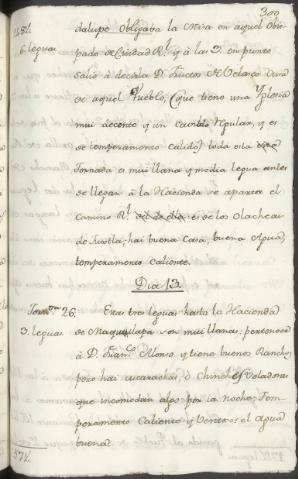 300
dalupe obligaba la Misa en aquel Obis-
pado de Ciudad R.l y à las 3. en punto
salio à decirla D. Velasco Cura
de aquel Pueblo, (que tiene una Yglesia
mui decente y un Curato Regular, y es
de temperamento calido) toda esta
Jornada es mui llana y media legua antes
de llegar à la Hacienda se aparta el
Camino R.l el de los
de Tustla; hai buena Casa, buena Agua,
temperamento caliente.
Dia 13.
Jorn.on 26.
3. leguas
Esas tres leguas hasta la Hacienda
de Maquilapa son mui llanas; pertenece
à D. Fran.co Alonso y tiene buenos Ranchos,
pero hai cucarachas, ò Chinches Voladoras
que incomodan algo por la noche; Tem-
peramento Caliente y Ventoso: el Agua
buena.
6. leguas